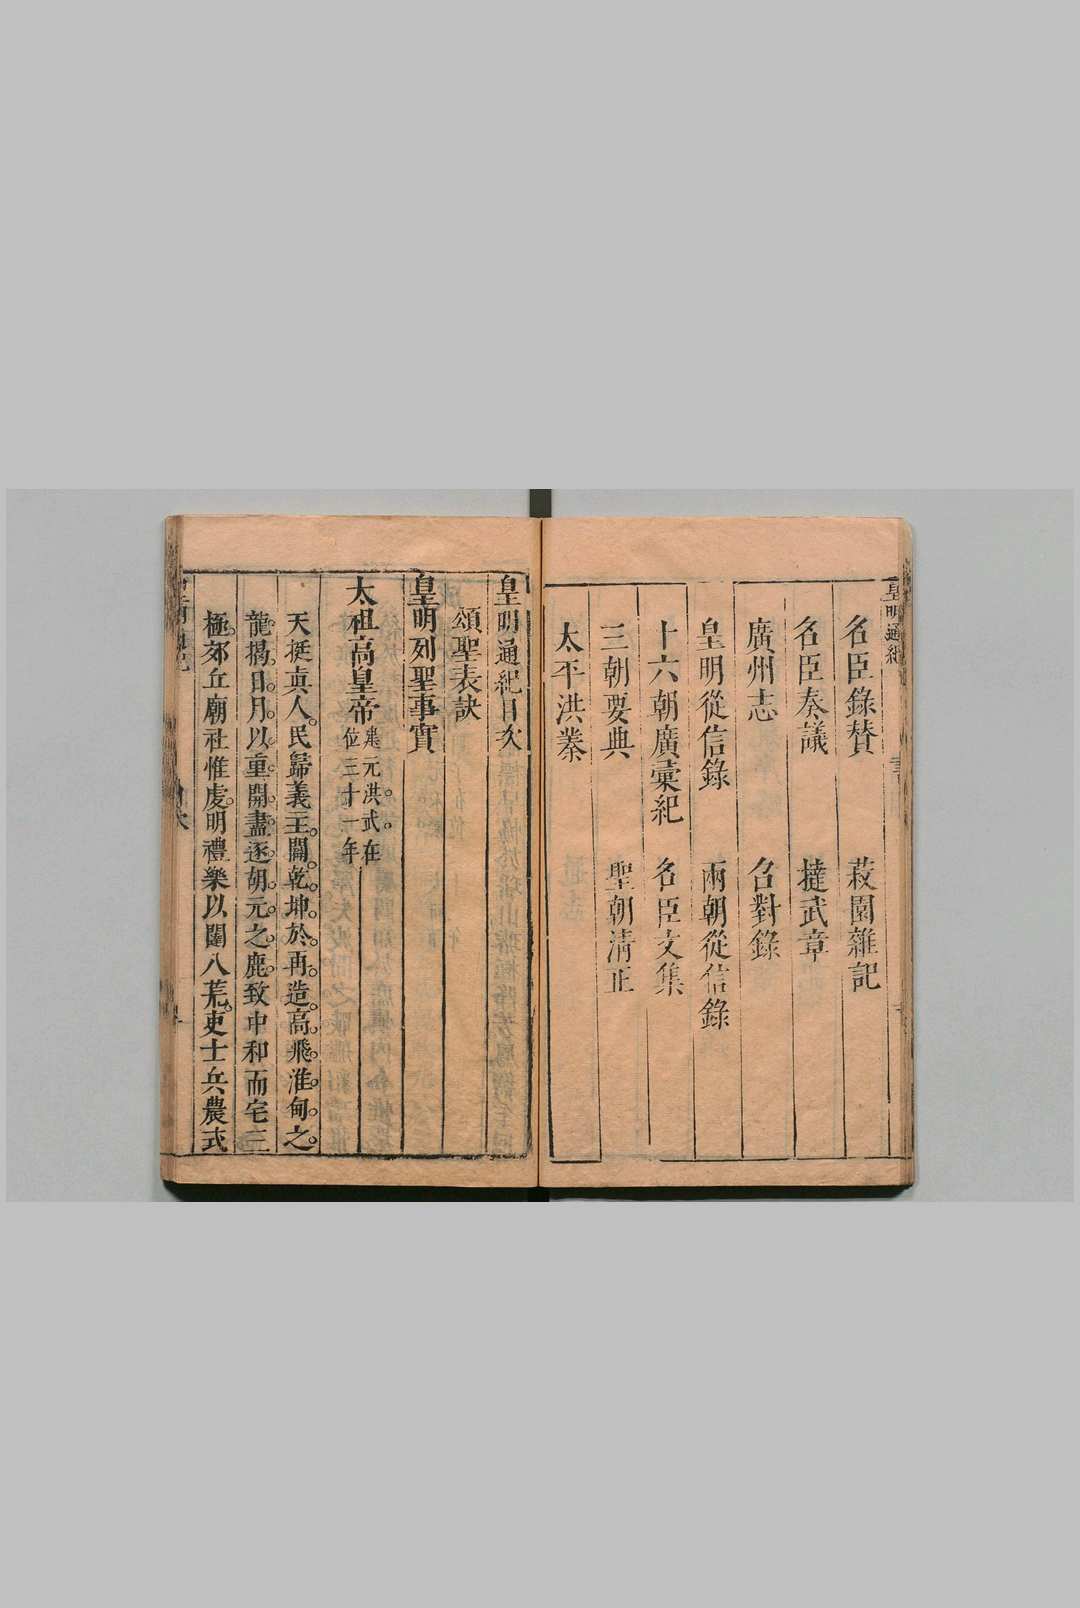 皇明通紀
名臣錄贊 菽園雜記
名臣奏議 撻武章
廣州志 召對錄
皇明從信錄 兩朝從信錄
十六朝廣彙紀 名臣文集
三朝要典 聖朝淸正
太平洪業
皇明通紀目次
頌聖表訣
皇明列聖事實
太祖高皇帝 建元洪武在
位三十一年
天挺眞人。民歸義主。闢乾坤於再造。高飛淮甸之。
龍。揭日月以重開。盡逐胡元之鹿。致中和而宅三
極。郊丘廟社惟虔。明禮樂以闢八荒。吏士兵農式